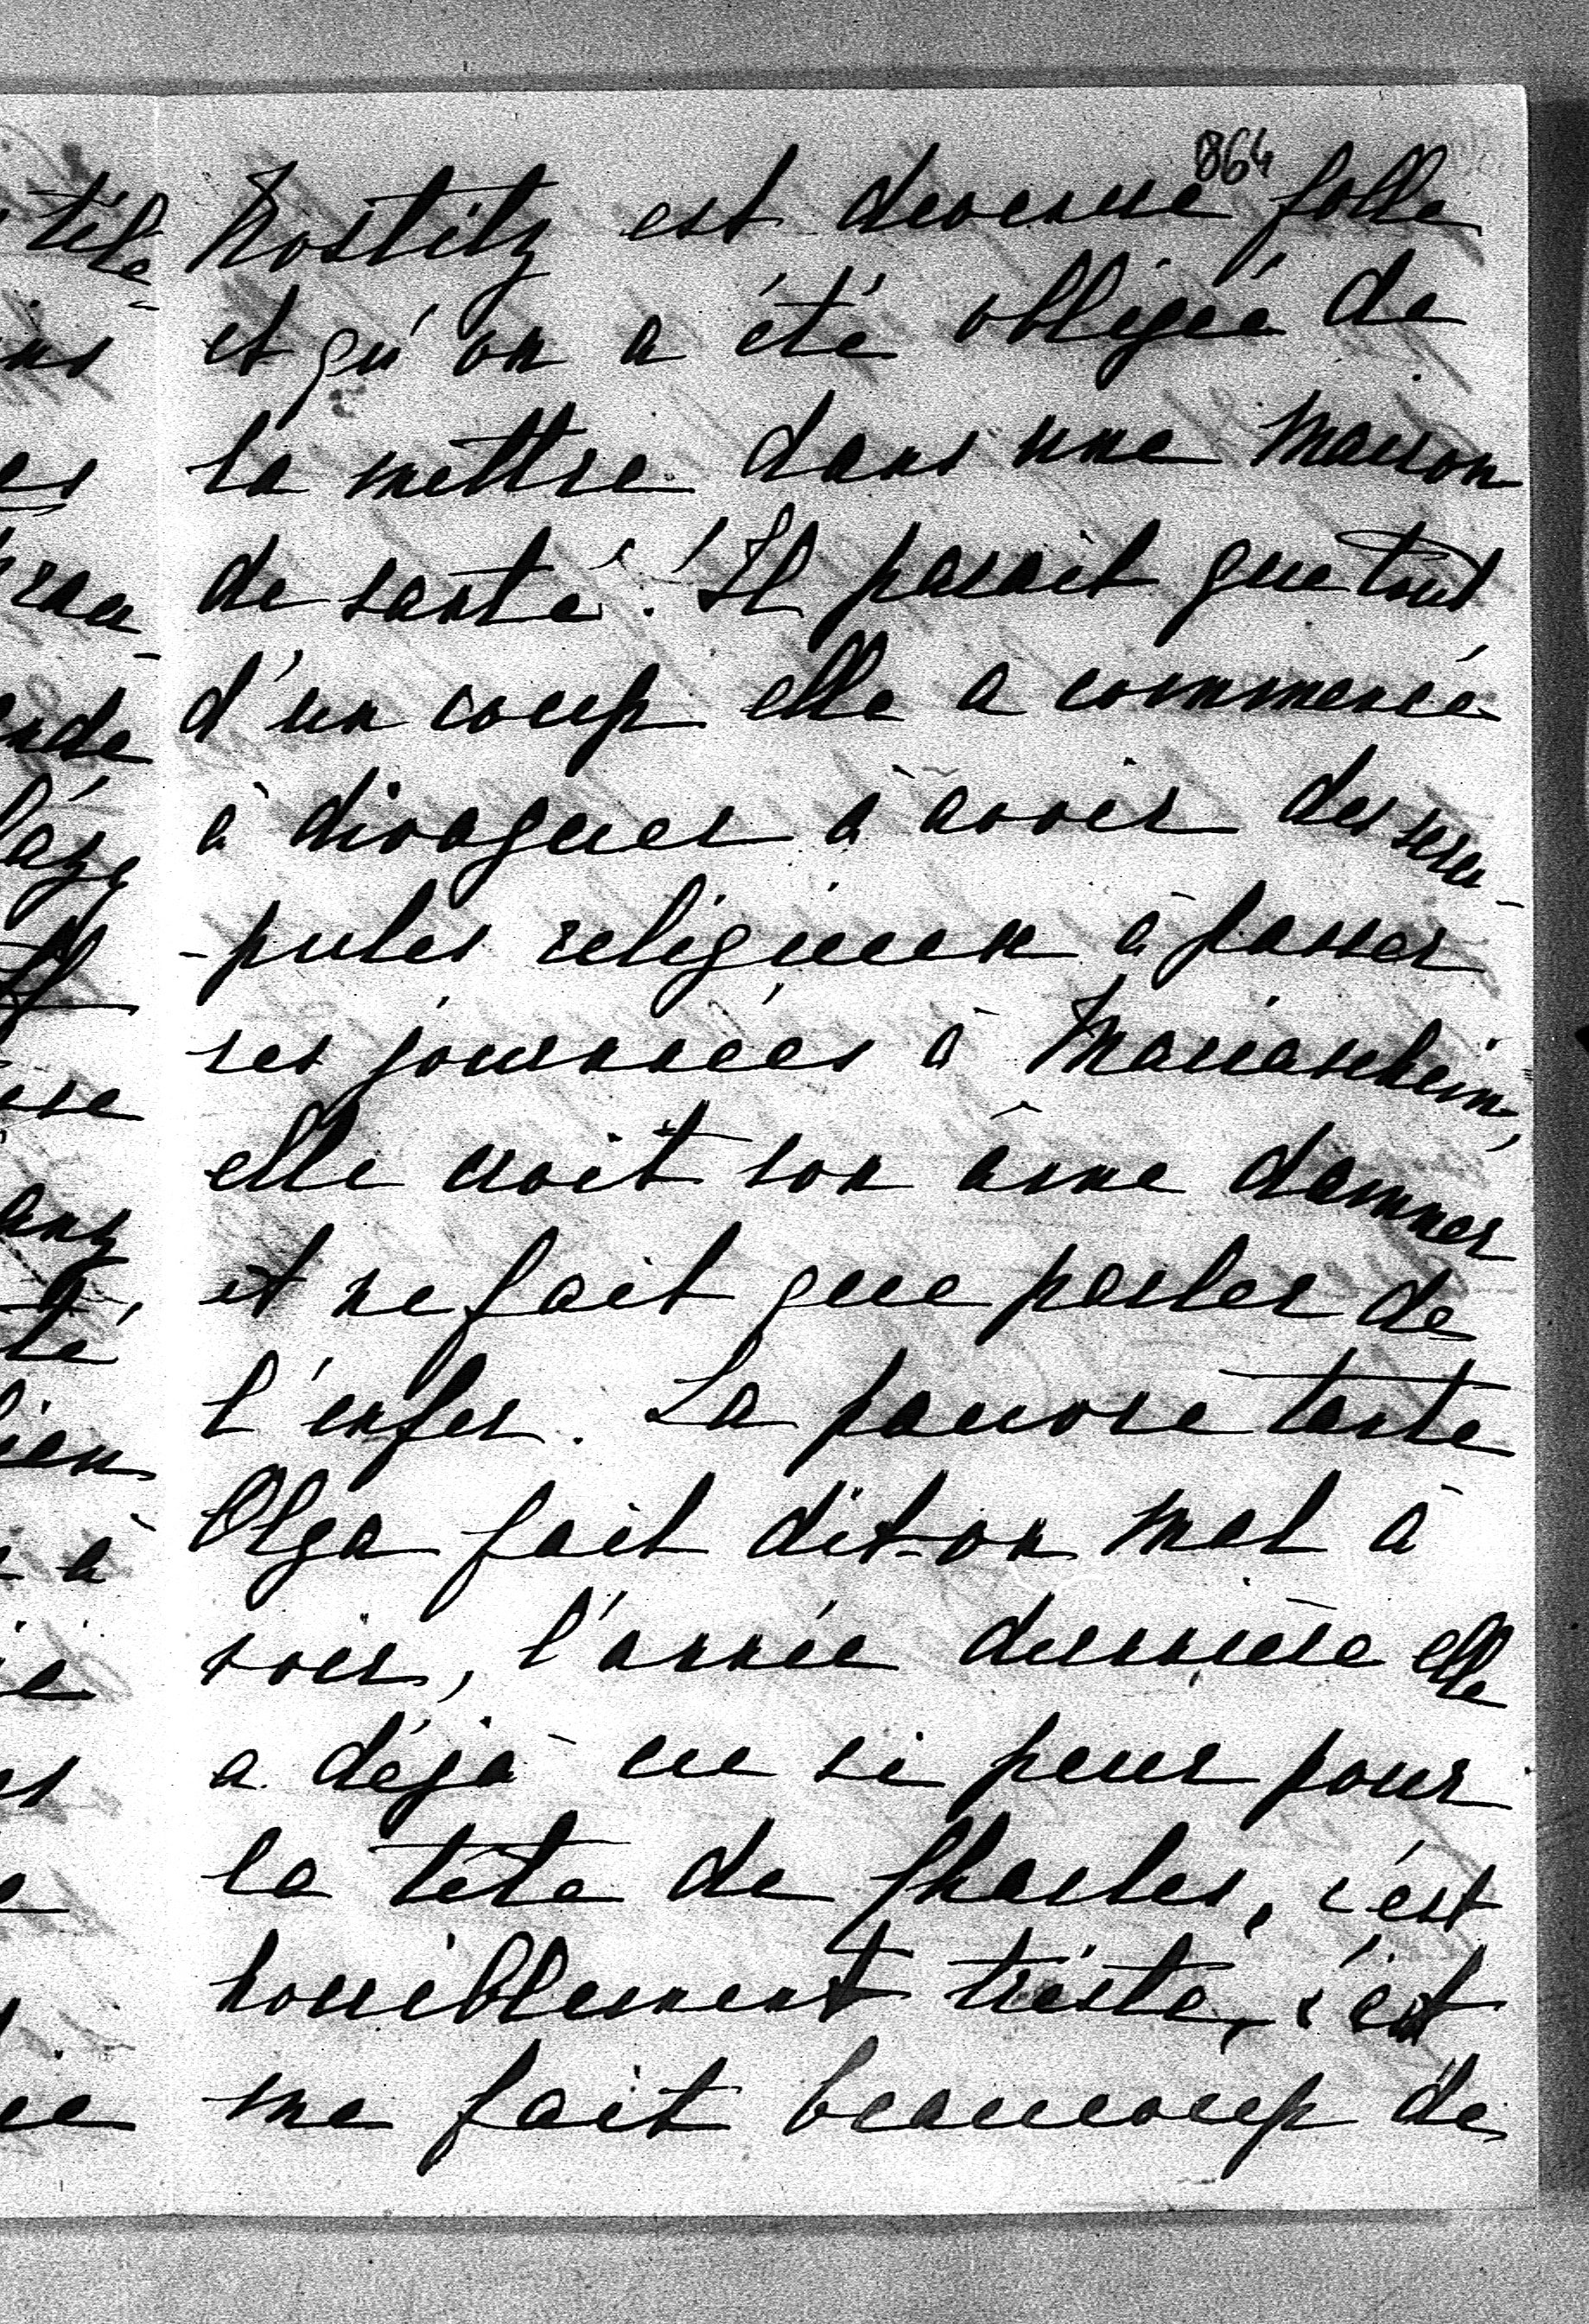 864
Nostitz est devenue folle
et qu'on a été obligée de
la mettre dans une maison
de santé! Il parait que tout
d'un coup elle a commencée
à divaguer à avoir des scru-
-pules religieux à passer
ses journées à Mariaschein,
elle croit son âme damner
et ne fait que parler de
l'enfer. La pauvre tante
Olga fait dit-on mal à
voir, l'année dernière elle
a déjà eu si peur pour
la tête de Charles, c'est
horriblement triste, c'est
me fait beaucoup de